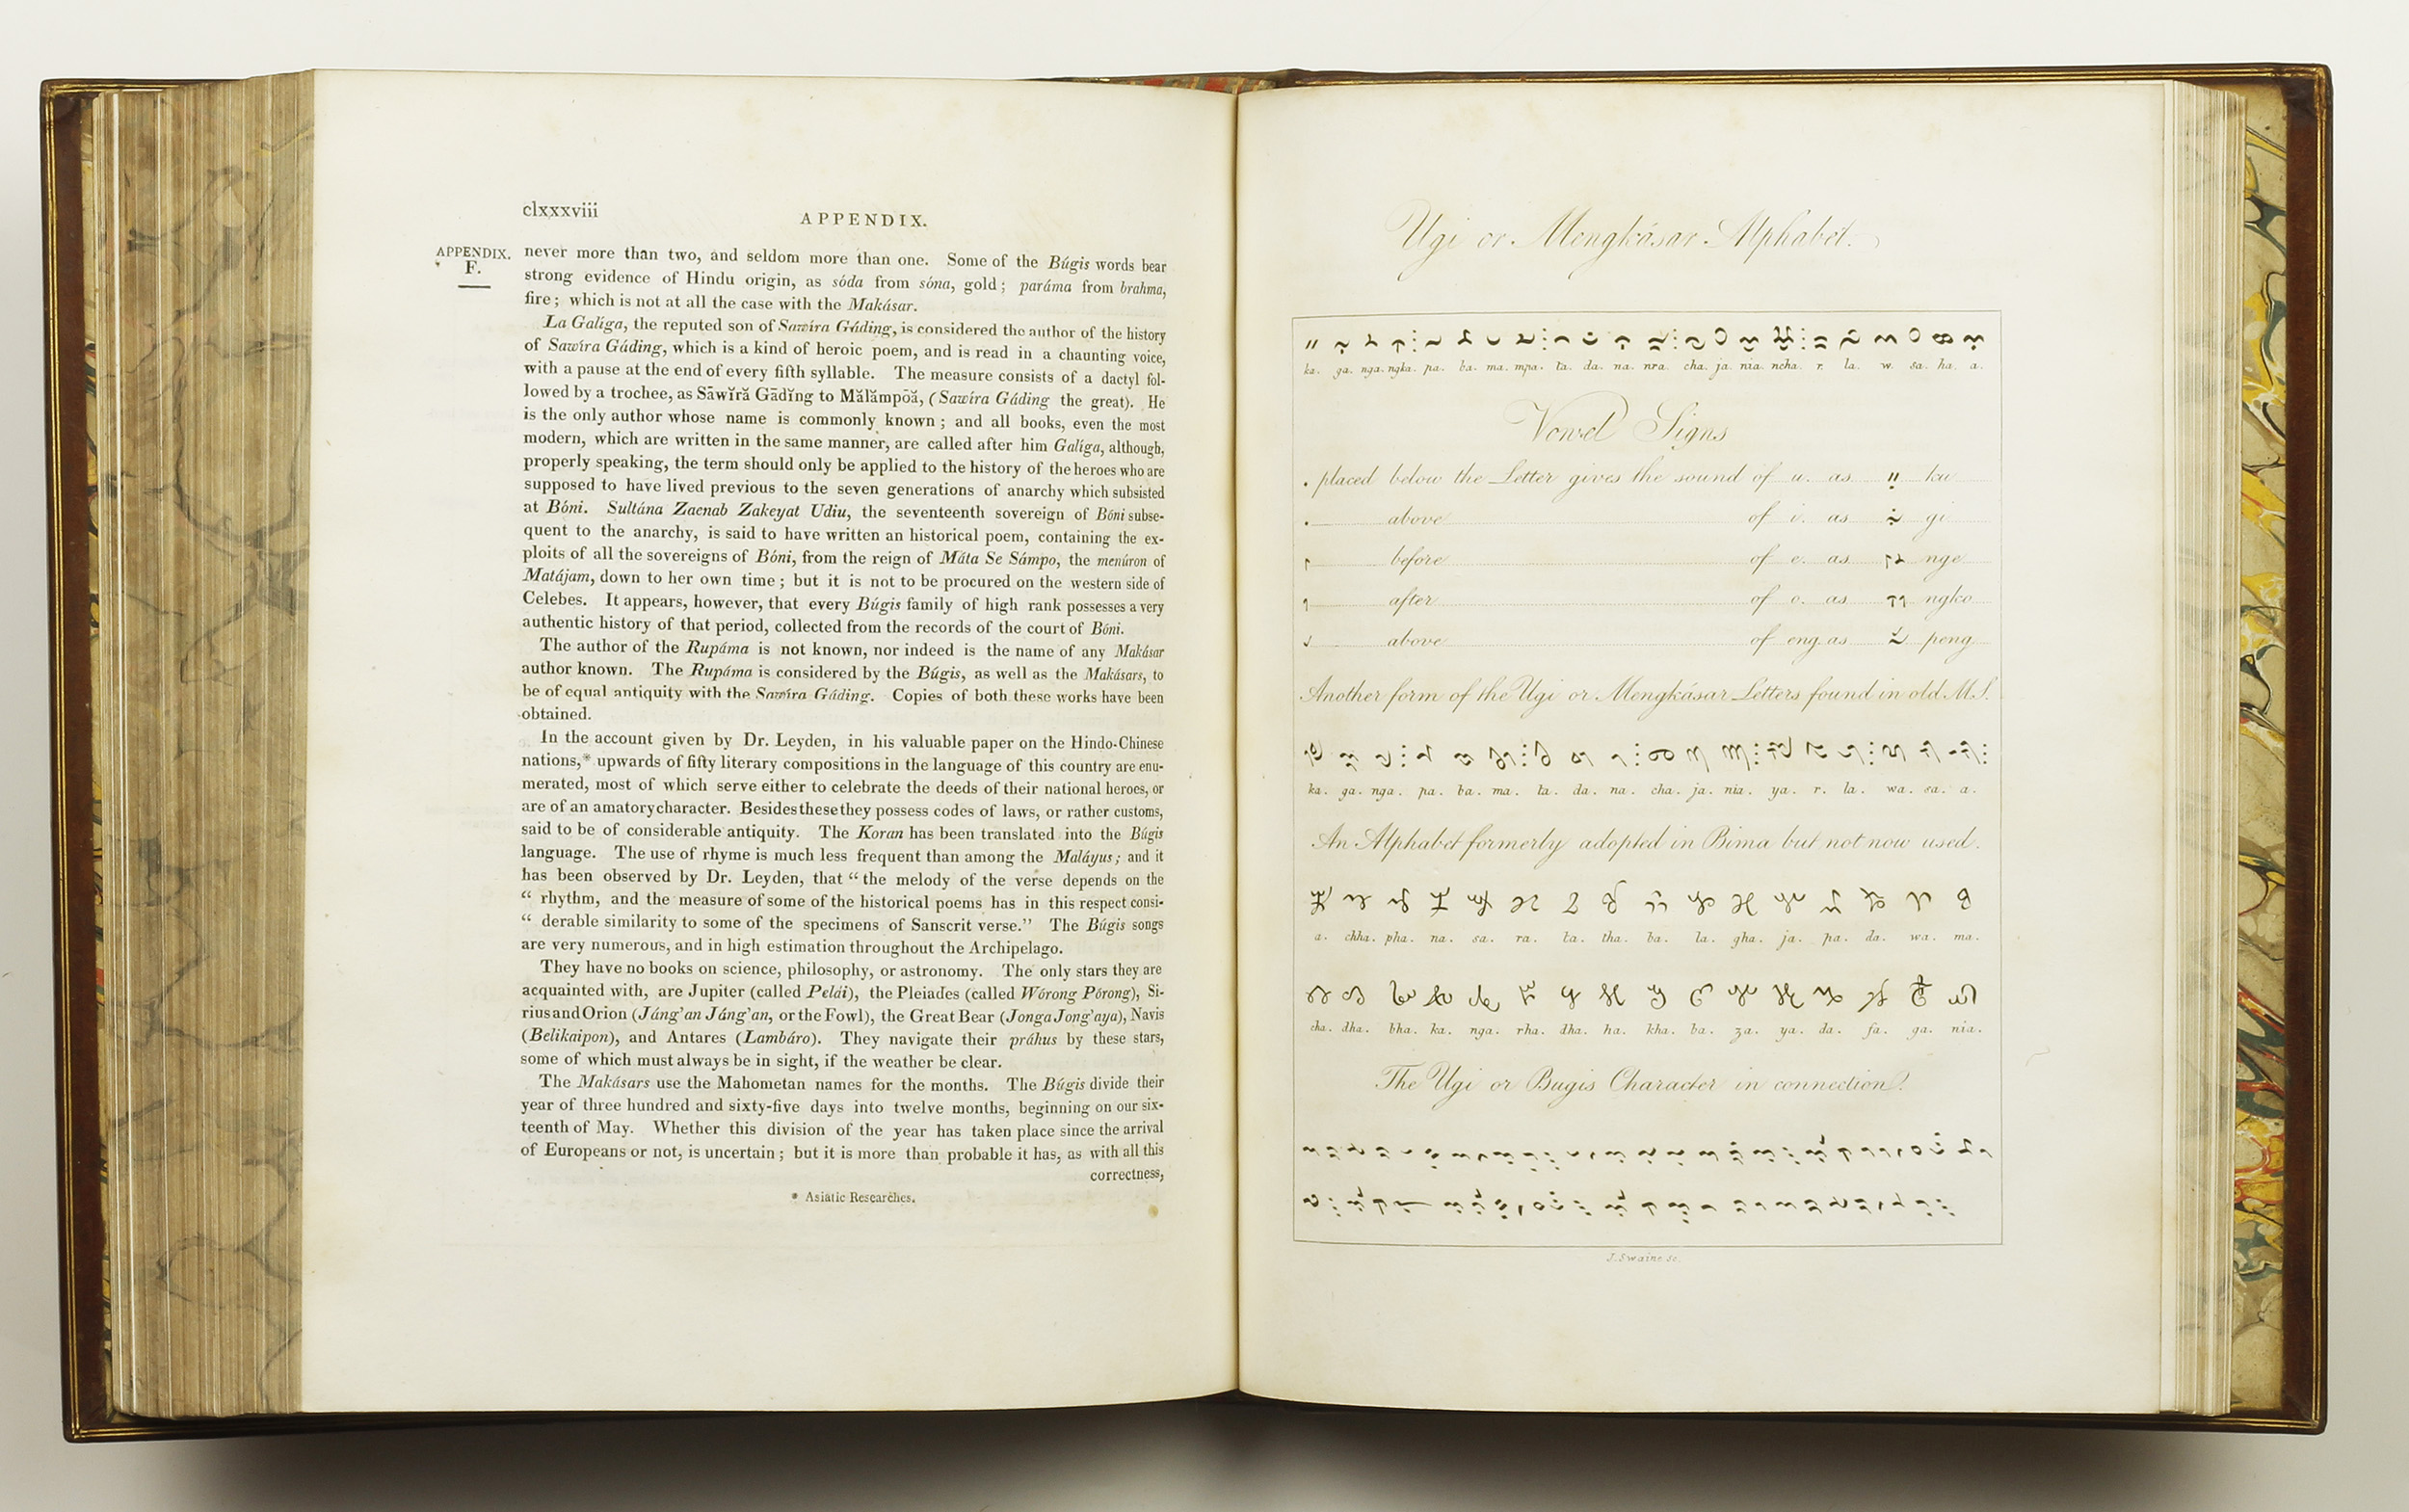 clxxxviii
APPENDIX.
APPENDIX.
F.
never more than two, and seldom more than one. Some of the Búgis words bear
strong evidence of Hindu origin, as sóda from sóna, gold; paráma from brahma,
fire; which is not at all the case with the Makásar.
La Galíga, the reputed son of Sawíra Gáding, is considered the author of the history
of Sawíra Gáding, which is a kind of heroic poem, and is read in a chaunting voice,
with a pause at the end of every fifth syllable. The measure consists of a dactyl fol-
lowed by a trochee, as Sāwĭră Gādĭng to Mălămpōă, (Sawíra Gáding the great). He
is the only author whose name is commonly known; and all books, even the most
modern, which are written in the same manner, are called after him Galíga, although,
properly speaking, the term should only be applied to the history of the heroes who are
supposed to have lived previous to the seven generations of anarchy which subsisted
at Bóni. Sultána Zaenab Zakeyat Udiu, the seventeenth sovereign of Bóni subse-
quent to the anarchy, is said to have written an historical poem, containing the ex-
ploits of all the sovereigns of Bóni, from the reign of Máta Se Sámpo, the menúron of
Matájam, down to her own time; but it is not to be procured on the western side of
Celebes. It appears, however, that every Búgis family of high rank possesses a very
authentic history of that period, collected from the records of the court of Bóni.
The author of the Rupáma is not known, nor indeed is the name of any Makásar
author known. The Rupáma is considered by the Búgis, as well as the Makásars, to
be of equal antiquity with the Sawíra Gáding. Copies of both these works have been
obtained.
In the account given by Dr. Leyden, in his valuable paper on the Hindo-Chinese
nations,* upwards of fifty literary compositions in the language of this country are enu-
merated, most of which serve either to celebrate the deeds of their national heroes, or
are of an amatory character. Besides these they possess codes of laws, or rather customs,
said to be of considerable antiquity. The Koran has been translated into the Búgis
language. The use of rhyme is much less frequent than among the Maláyus; and it
has been observed by Dr. Leyden, that “the melody of the verse depends on the
“ rhythm, and the measure of some of the historical poems has in this respect consi-
“ derable similarity to some of the specimens of Sanscrit verse.” The Búgis songs
are very numerous, and in high estimation throughout the Archipelago.
They have no books on science, philosophy, or astronomy. The only stars they are
acquainted with, are Jupiter (called Pelái), the Pleiades (called Wórong Pórong), Si-
rius and Orion (Jáng'an Jáng'an, or the Fowl), the Great Bear (Jonga Jong'aya), Navis
(Belikaipon), and Antares (Lambáro). They navigate their práhus by these stars,
some of which must always be in sight, if the weather be clear.
The Makásars use the Mahometan names for the months. The Búgis divide their
year of three hundred and sixty-five days into twelve months, beginning on our six-
teenth of May. Whether this division of the year has taken place since the arrival
of Europeans or not, is uncertain; but it is more than probable it has, as with all this
correctness,
* Asiatic Researches.
Ugi or Mengkásar Alphabet.
ka. ga. nga. ngka. pa. ba. ma. mpa. ta. da. na. nra. cha. ja. nia. ncha. r. la. w. sa. ha. a.
Vowel Signs
. placed below the Letter gives the sound of u. as ku
. above of i. as gi
before of e. as nge
after of o. as ngko
above of eng as peng
Another form of the Ugi or Mengkásar Letters found in old M.S.
ka. ga. nga. pa. ba. ma. ta. da. na. cha. ja. nia. ya. r. la. wa. sa. a.
An Alphabet formerly adopted in Bima but not now used.
a. chha. pha. na. sa. ra. ta. tha. ba. la. gha. ja. pa. da. wa. ma.
cha. dha. bha. ka. nga. rha. dha. ha. kha. ba. za. ya. da. fa. ga. nia.
The Ugi or Bugis Character in connection.
J. Swaine sc.